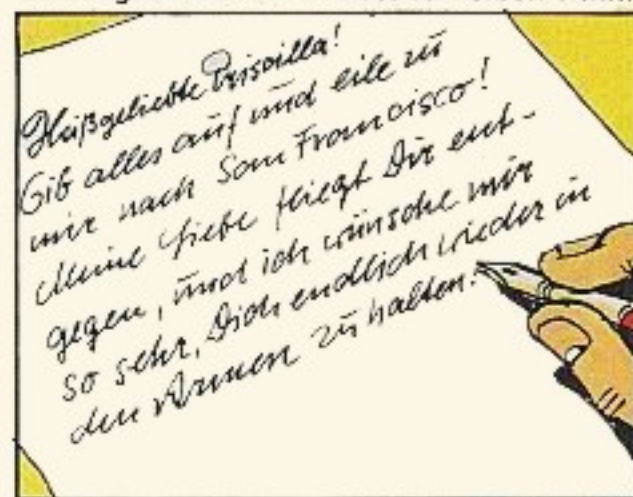 Heißgeliebte Priscilla!
Gib alles auf und eile zu
mir nach San Francisco!
Meine Liebe fliegt Dir ent-
gegen, und ich wünsche mir
so sehr, Dich endlich wieder in
den Armen zu halten!